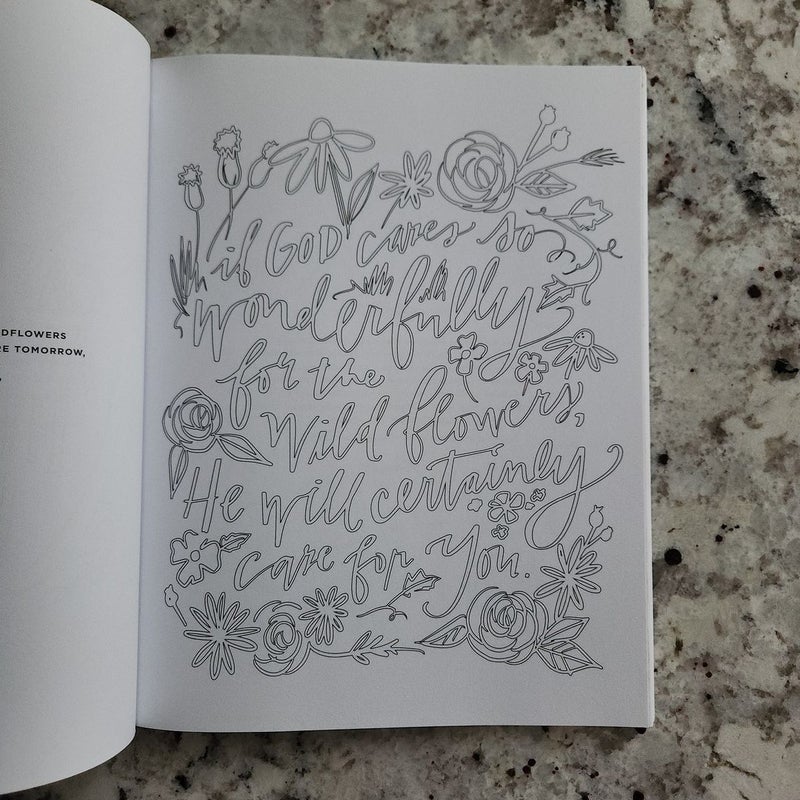 DFLOWERS
RE TOMORROW,
if GOD cares so
wonderfully
for the
Wild flowers,
He will certainley
care for you.